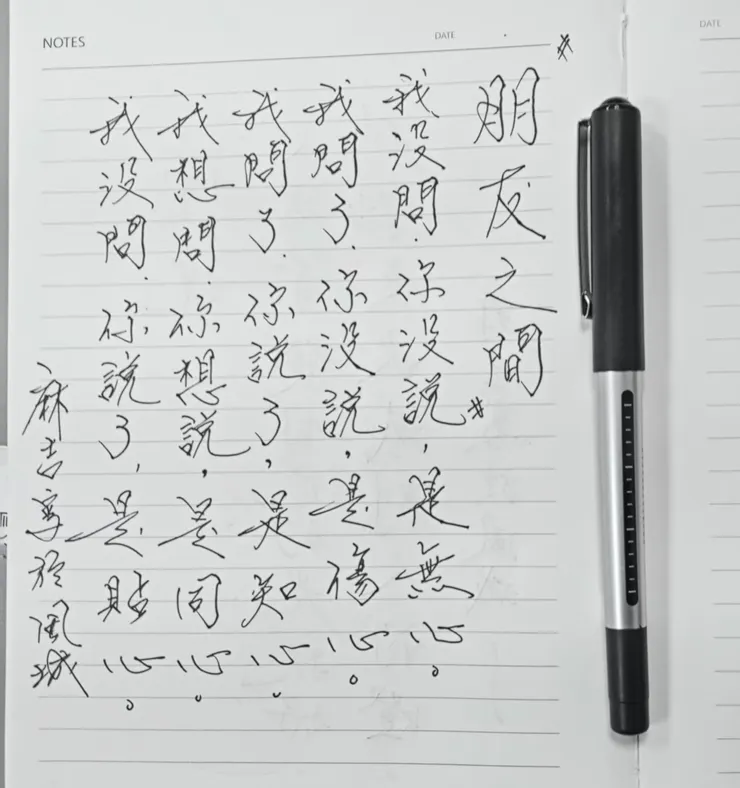 NOTES
DATE
DATE
朋友之間
我沒問.你沒說,是無心。
我問了.你沒說,是傷心。
我問了.你說了,是知心。
我想問.你想說,是同心。
我沒問.你說了,是貼心。
麻吉寫於風城